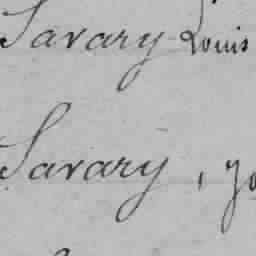 Savary Louis
Savary,